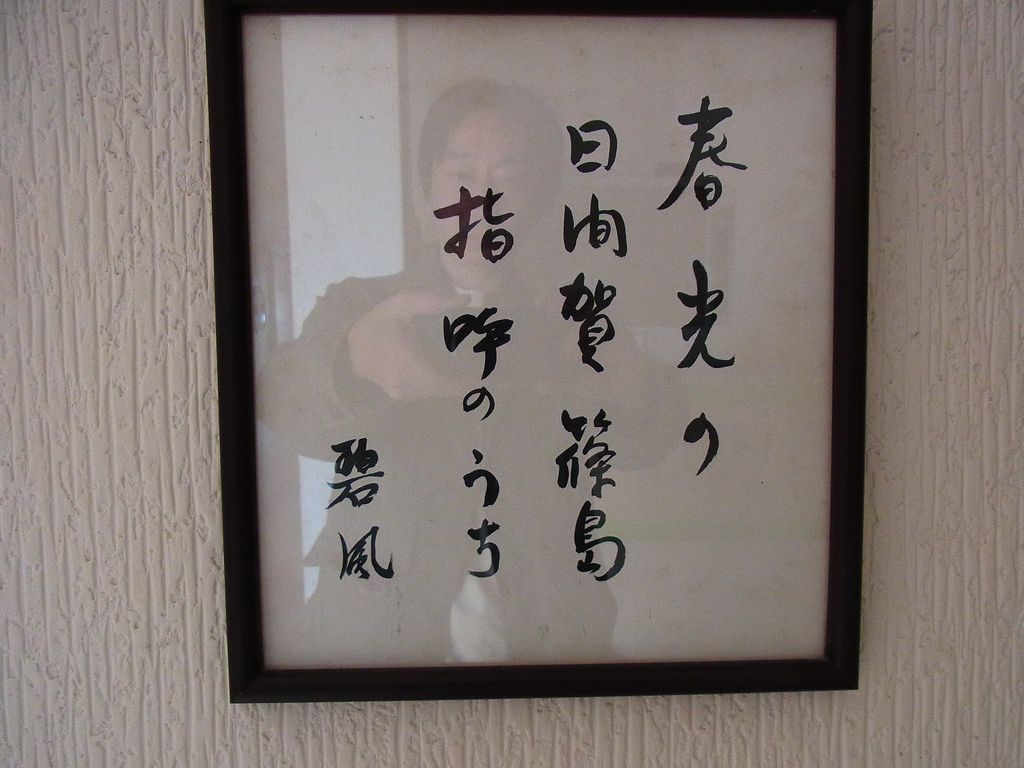 春光の
日间賀篠島
指呼のうち
碧風